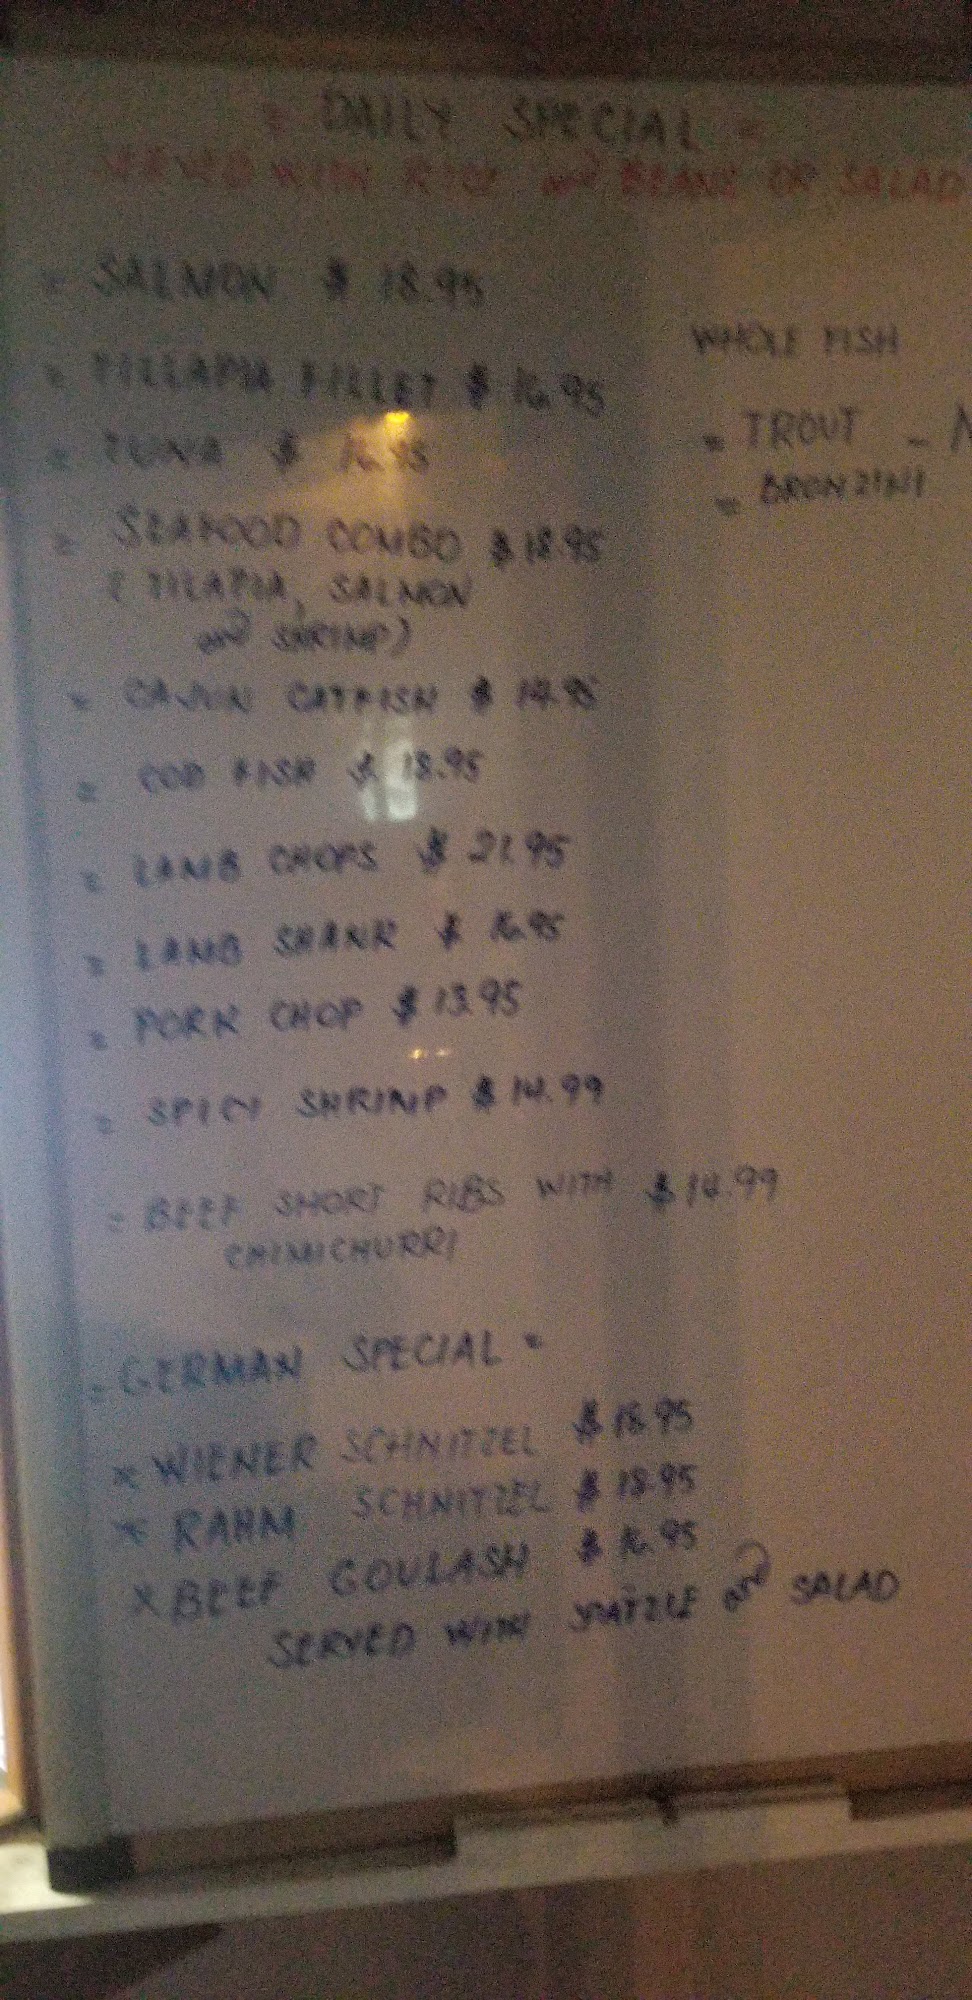 = DAILY SPECIAL =
SERVED WITH RICE and BEANS OR SALAD
= SALMON $ 18.95
= TILLAPIA FILLET $ 16.95
= TUNA $ 16.95
= SEAFOOD COMBO $ 18.95
( TILAPIA, SALMON
and SHRIMP)
= CAJUN CATFISH $ 14.95
= COD FISH $ 18.95
= LAMB CHOPS $ 21.95
= LAMB SHANK $ 16.95
= PORK CHOP $ 13.95
= SPICY SHRIMP $ 14.99
= BEEF SHORT RIBS WITH $ 14.99
CHIMICHURRI
= GERMAN SPECIAL =
× WIENER SCHNITZEL
× RAHM SCHNITZEL $ 18.95
× BEEF GOULASH $ 16.95
SERVED WITH SPATZLE and SALAD
WHOLE FISH
= TROUT -
= BRONZINI